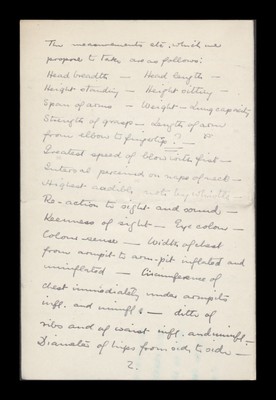 The measurements etc. which we
propose to take, are as follows:
Head breadth — Head length —
Height standing — Height sitting —
Span of arms — Weight — Lung capacity
Strength of grasp — Length of arm
from elbow to fingertip? —
Greatest speed of blow with fist —
Interval perceived on nape of neck —
Highest audible note by whistle —
Re-action to sight and sound —
Keenness of sight — Eye colour —
Colour sense — Width of chest
from armpit to arm-pit inflated and
uninflated — Circumference of
chest immediately under armpits
infl. and uninfl. — ditto of
ribs and of waist infl. and uninfl. —
Diameter of hips from side to side —
2.